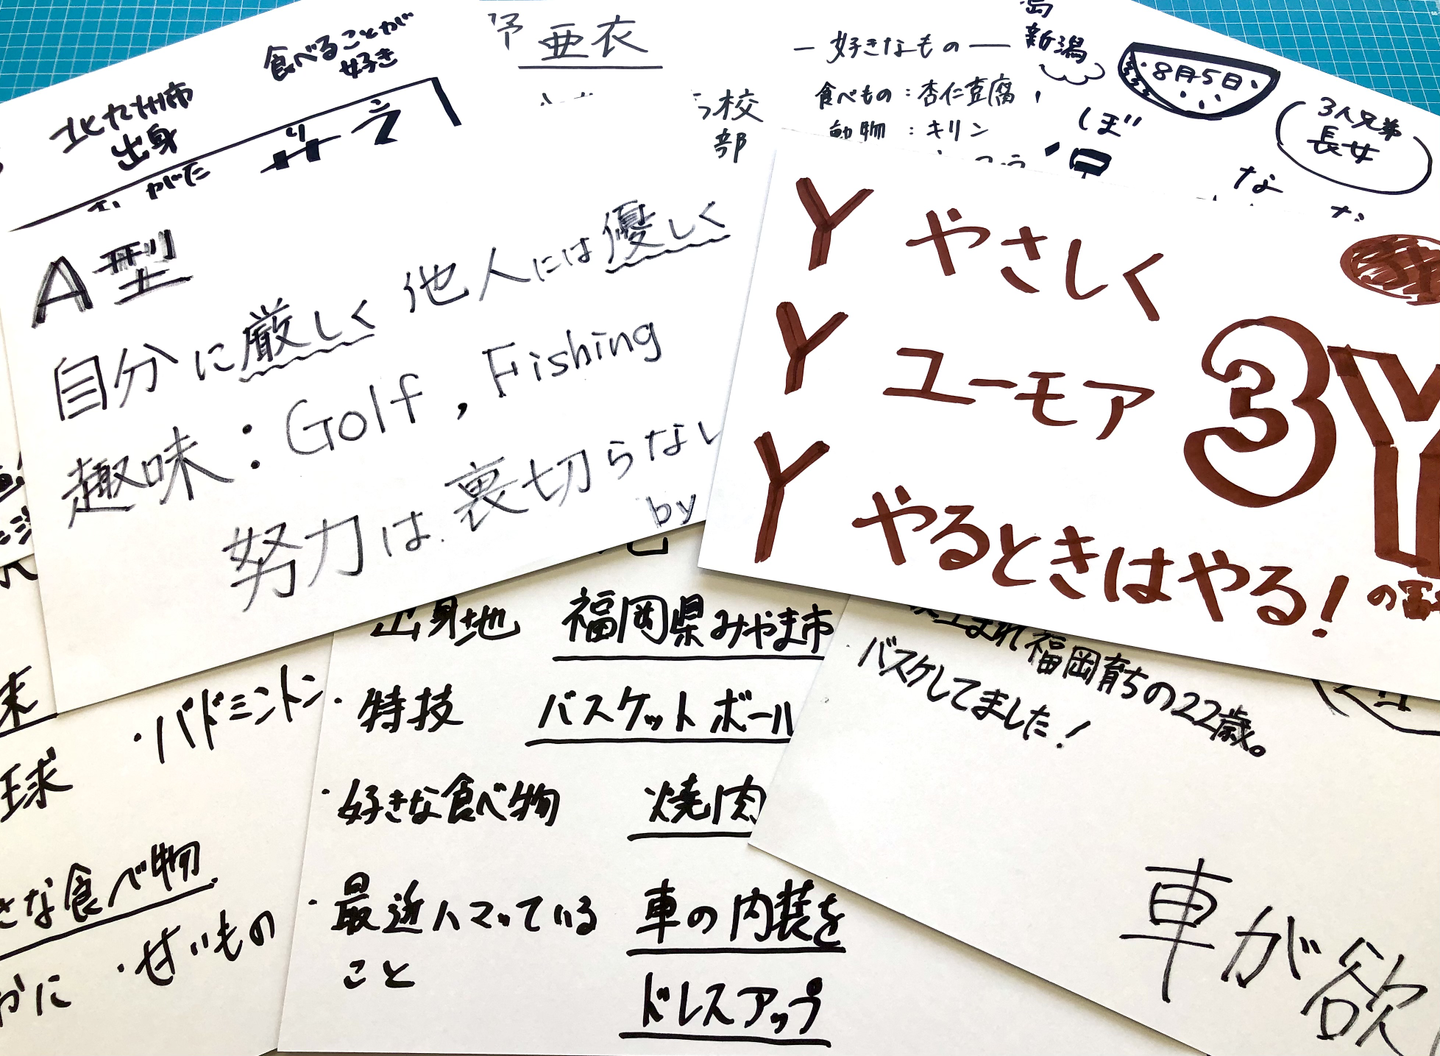 食べることが
好き
北九州市
出身
亜衣
校
部
― 好きなもの ―
食べもの：杏仁豆腐
動物 ：キリン
新潟
8月5日
3人兄弟
長女
な
A型
自分に厳しく 他人には優しく
趣味：Golf , Fishing
努力は裏切らない
by
Y やさしく
Y ユーモア
Y やるときはやる!
3Y
出身地 福岡県みやま市
・特技 バスケットボール
・好きな食べ物 焼肉
・最近ハマっている 車の内装を
こと ドレスアップ
・バドミントン
球
な食べ物
かに ・せいもの
まれ福岡育ちの22歳。
バスケしてました!
車が欲